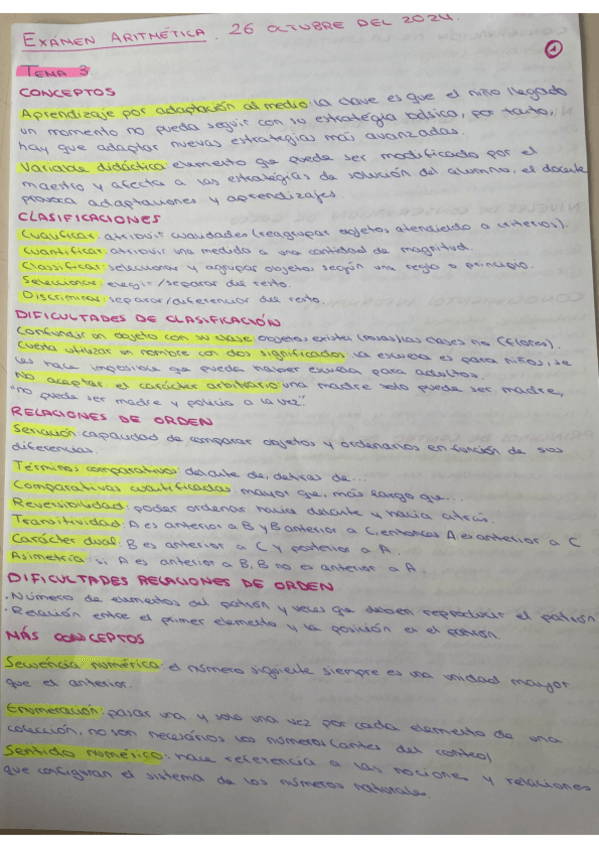 EXÁMEN ARITMÉTICA. 26 OCTUBRE DEL 2024.
1
TEMA 3
CONCEPTOS
Aprendizaje por adaptación al medio: la clave es que el niño llegado
un momento no pueda seguir con su estrategia básica, por tanto,
hay que adaptar nuevas estrategias más avanzadas.
Variable didáctica: elemento que puede ser modificado por el
maestro y afecta a las estrategias de solución del alumno, el docente
provoca adaptaciones y aprendizajes.
CLASIFICACIONES
Cualificar: atribuir cualidades (reagrupar objetos atendiendo a criterios).
Cuantificar: atribuir una medida a una cantidad de magnitud.
Classificar: seleccionar y agrupar objetos según una regla o principio.
Seleccionar: elegir/separar del resto.
Discriminar: separar/diferenciar del resto.
DIFICULTADES DE CLASIFICACIÓN
Confundir un objeto con su clase: objetos exista (rosas) las clases no (flores).
Cuesta utilizar un nombre con dos significados: la escuela es para niños, se
les hace imposible que pueda haber escuela para adultos.
No aceptar el carácter arbitrario: una madre solo puede ser madre,
"no puede ser madre y policía a la vez".
RELACIONES DE ORDEN
Seriación: capacidad de comparar objetos y ordenarlos en función de sus
diferencias.
Términos comparativos: delante de, detrás de...
Comparativas cuantificadas: mayor que, más largo que...
Reversibilidad: poder ordenar hacia delante y hacia atrás.
Transitividad: A es anterior a B y B anterior a C, entonces A es anterior a C
Carácter dual: B es anterior a C y posterior a A.
Asimetría: si A es anterior a B, B no es anterior a A.
DIFICULTADES RELACIONES DE ORDEN
· Número de elementos del patrón y veces que deben reproducir el patrón
· Relación entre el primer elemento y la posición en el patrón.
MÁS CONCEPTOS
Secuencia numérica: el número siguiente siempre es una unidad mayor
que el anterior.
Enumeración: pasar una, y solo una vez por cada elemento de una
colección, no son necesarios los números (antes del conteo)
Sentido numérico: hace referencia a las nociones y relaciones
que configuran el sistema de los números naturales.